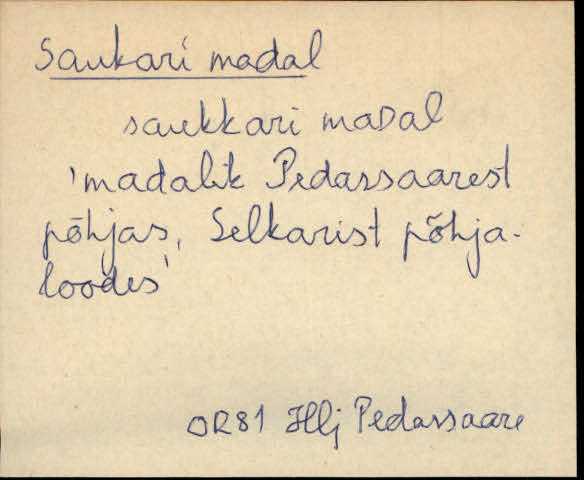 Saukari madal
saukkari maDal
'madalik Pedassaarest
põhjas, Selkarist põhja-
loodes'
OR81 Hlj Pedassaare